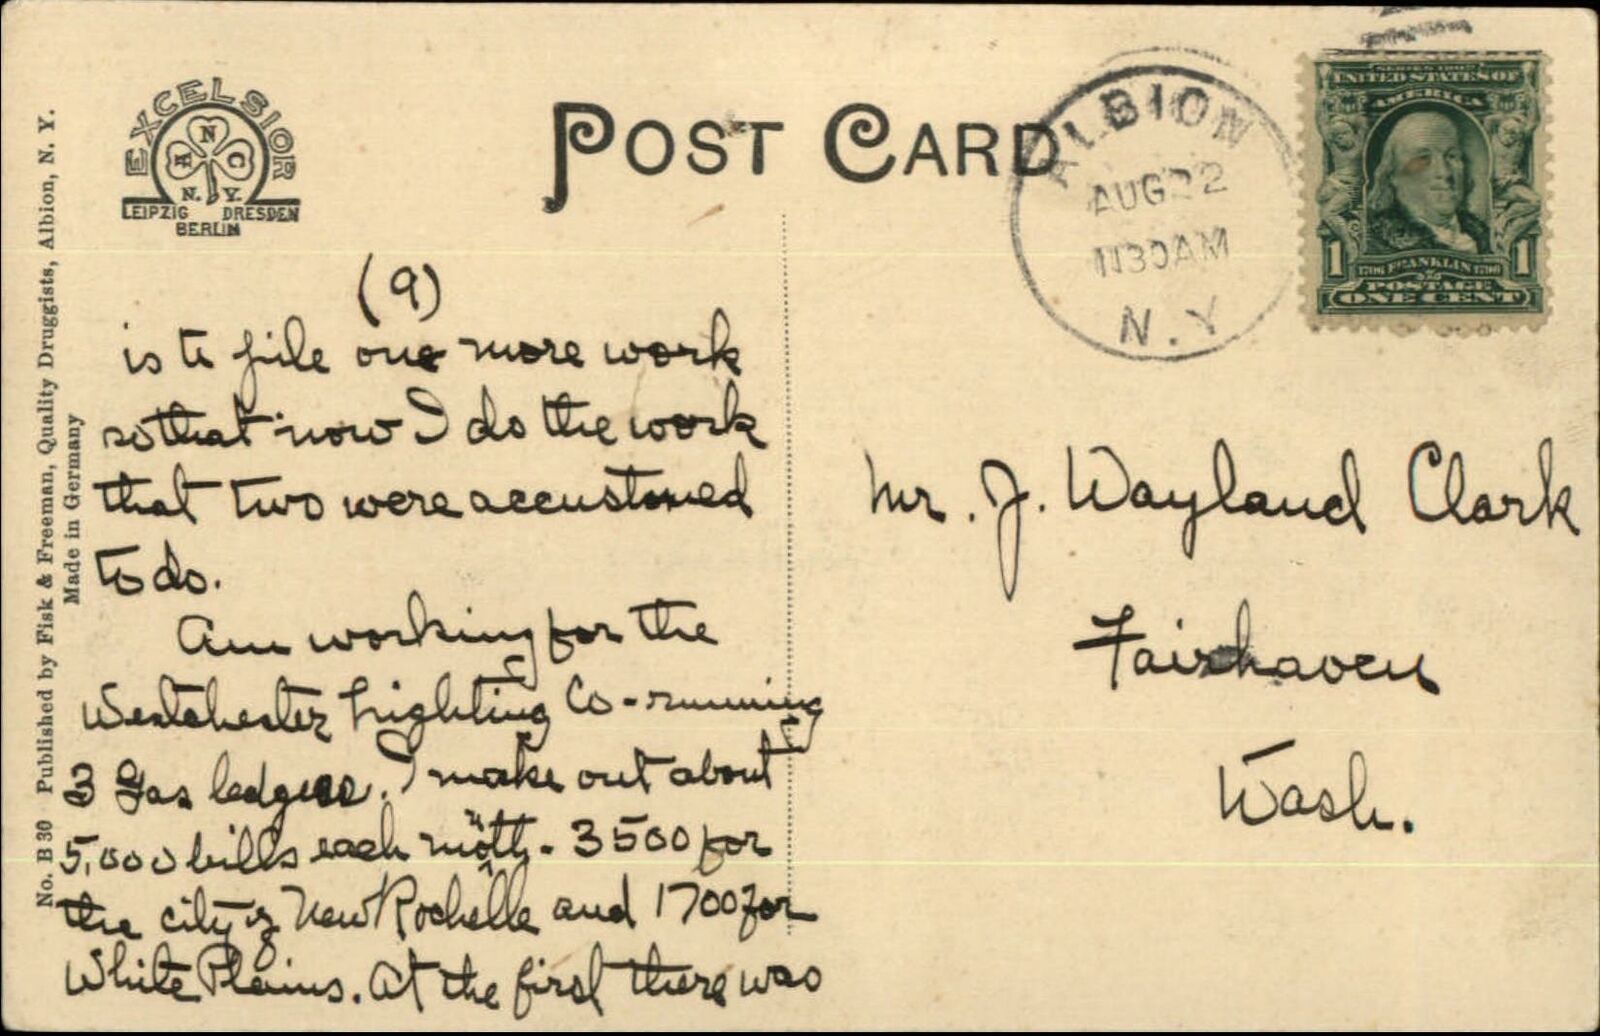 EXCELSIOR
A N C
N. Y.
LEIPZIG DRESDEN
BERLIN
POST CARD
ALBION
AUG 22
1130AM
N.Y
SERIES 1902
UNITED STATES OF
AMERICA
1 1706 FRANKLIN 1790 1
POSTAGE
ONE CENT
No. B 30 Published by Fisk & Freeman, Quality Druggists, Albion, N. Y.
Made in Germany
(9)
is to pile one more work
so that now I do the work
that two were accustomed
to do.
Am working for the
Westchester Lighting Co - running
3 Gas ledgers. I make out about
5,000 bills each month - 3500 for
the city of New Rochelle and 1700 for
White Plains. At the first there was
Mr. J. Wayland Clark
Fairhaven
Wash.